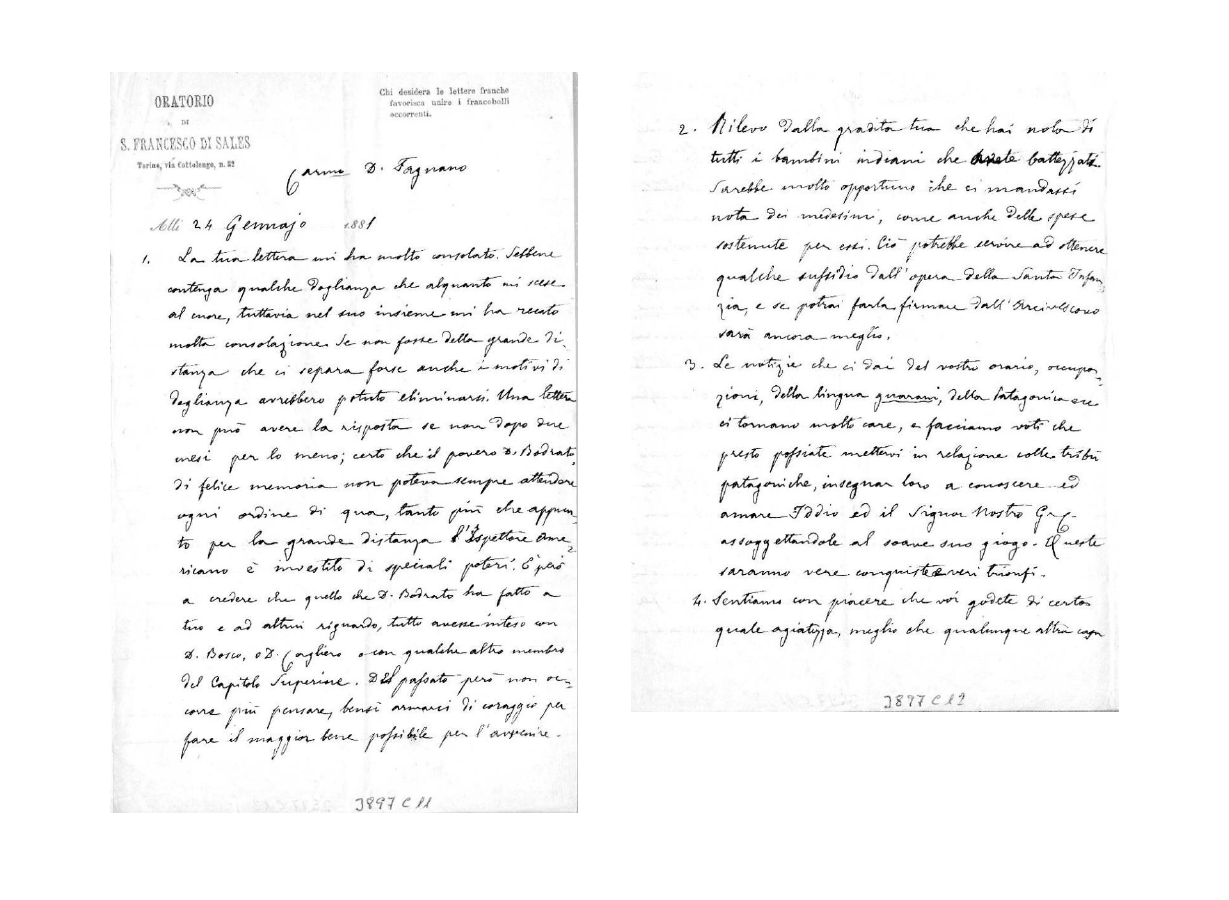 ORATORIO
DI
S. FRANCESCO DI SALES
Torino, via Cottolengo, n. 32
Chi desidera le lettere franche
favorisca unire i francobolli
occorrenti.
Carmo D. Fagnano
Alli 24 Gennajo 1881
1. La tua lettera mi ha molto consolato. Sebbene
contenga qualche doglianza che alquanto mi scese
al cuore, tuttavia nel suo insieme mi ha recato
molta consolazione. Se non fosse della grande di-
stanza che ci separa forse anche i motivi di
doglianza avrebbero potuto eliminarsi. Una lettera
non può avere la risposta se non dopo due
mesi per lo meno; certo che il povero D. Bodrato,
di felice memoria non poteva sempre attendere
ogni ordine di qua, tanto più che appun-
to per la grande distanza l'Ispettore Ame-
ricano è investito di speciali poteri. È però
a credere che quello che D. Bodrato ha fatto a
tuo e ad altrui riguardo, tutto avesse inteso con
D. Bosco, o D. Cagliero o con qualche altro membro
del Capitolo Superiore. Del passato però non oc-
corre più pensare, bensì armarci di coraggio per
fare il maggior bene possibile per l'avvenire.
3897 C 11
2. Rilevo dalla gradita tua che hai nota di
tutti i bambini indiani che avete battezzati.
Sarebbe molto opportuno che ci mandassi
nota dei medesimi, come anche delle spese
sostenute per essi. Ciò potrebbe servire ad ottenere
qualche sussidio dall'opera della Santa Infan-
zia, e se potrai farla firmare dall'Arcivescovo
sarà ancora meglio.
3. Le notizie che ci dai del vostro orario, occupa-
zioni, della lingua guarani, della Patagonica ecc
ci tornano molto care, e facciamo voti che
presto possiate mettervi in relazione colle tribù
patagoniche, insegnar loro a conoscere ed
amare Iddio ed il Signor Nostro G. C.
assoggettandole al soave suo giogo. Queste
saranno vere conquiste e veri trionfi.
4. Sentiamo con piacere che voi godete di certa
quale agiatezza, meglio che qualunque altra casa
3897 C 12